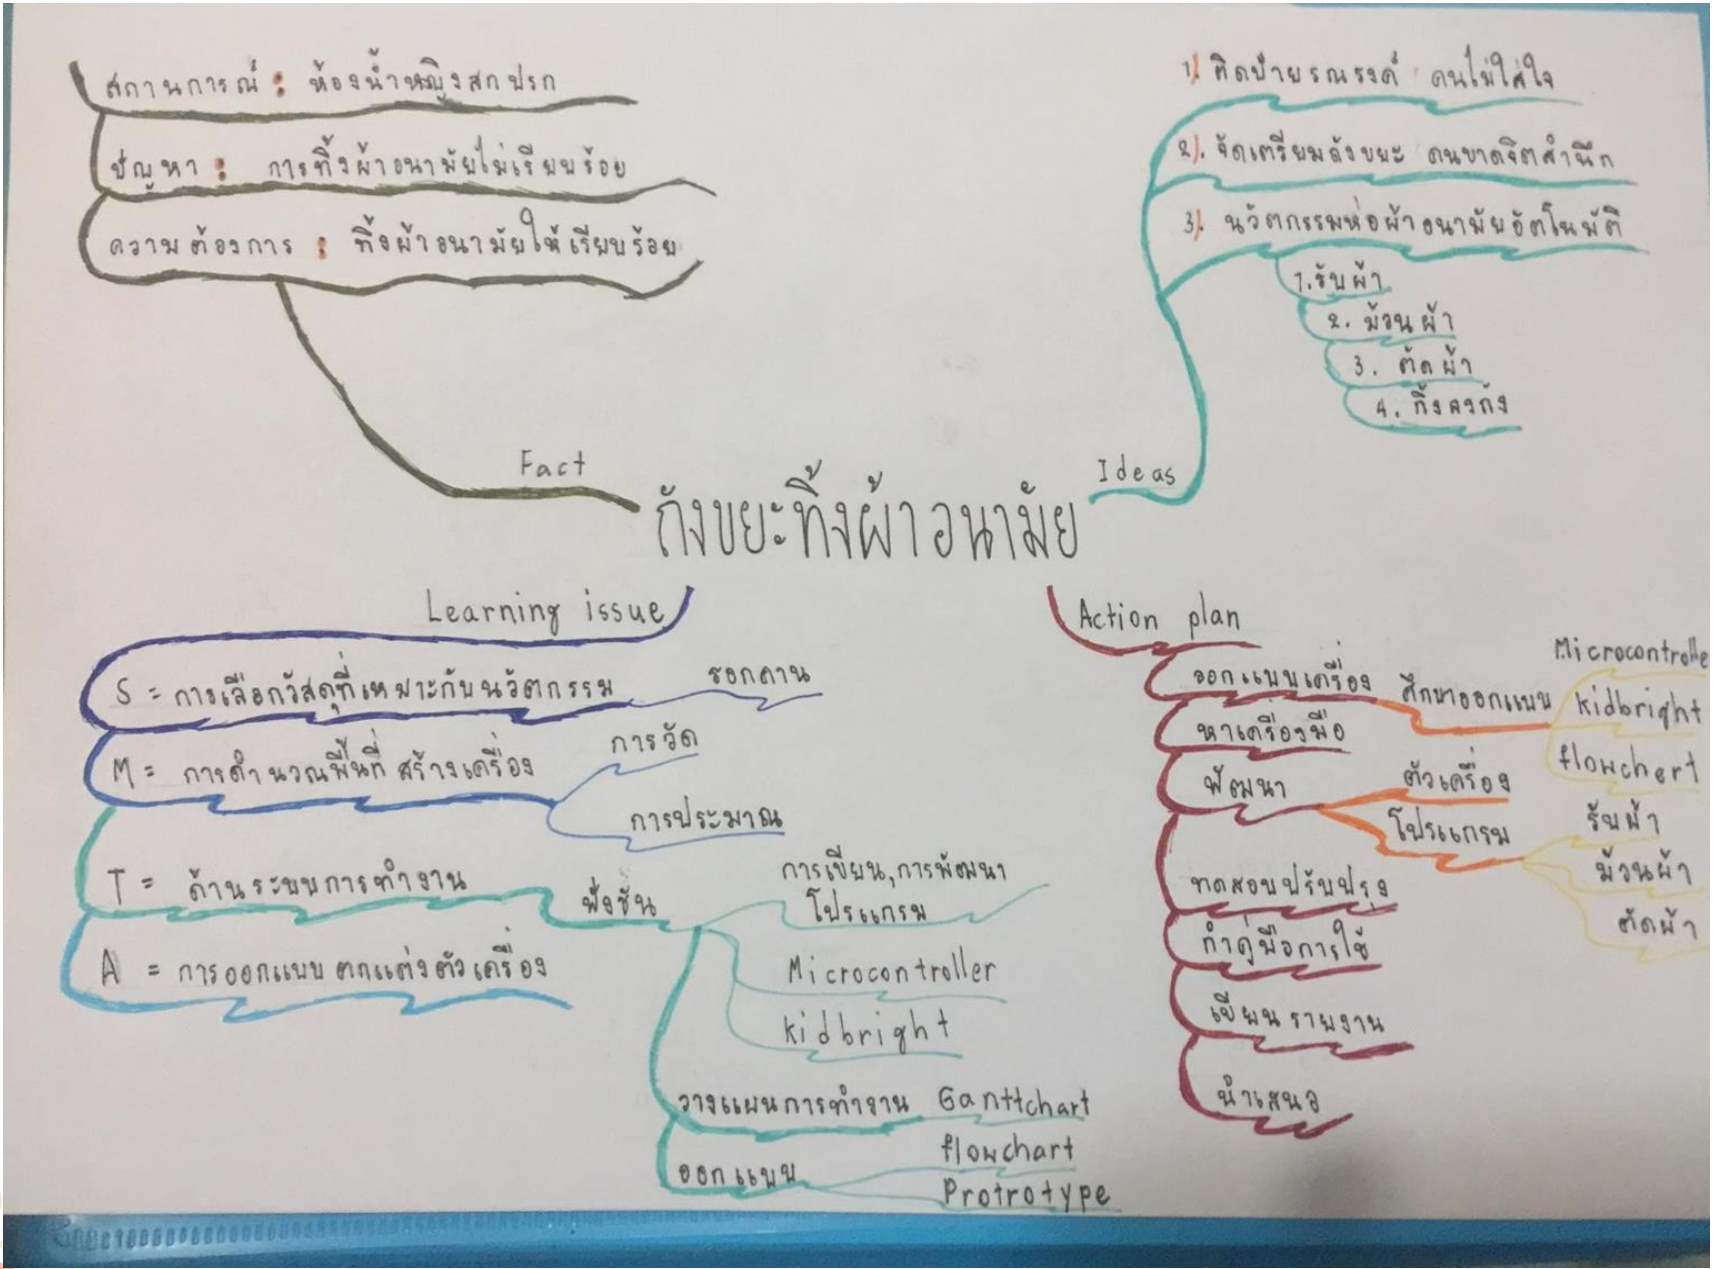 สถานการณ์ : ห้องน้ำหญิงสกปรก
ปัญหา : การทิ้งผ้าอนามัยไม่เรียบร้อย
ความต้องการ : ทิ้งผ้าอนามัยให้เรียบร้อย
Fact
1). ติดป้ายรณรงค์ คนไม่ใส่ใจ
2). จัดเตรียมถังขยะ คนขาดจิตสำนึก
3). นวัตกรรมห่อผ้าอนามัยอัตโนมัติ
1. รับผ้า
2. ม้วนผ้า
3. ตัดผ้า
4. ทิ้งลงถัง
Ideas
ถังขยะทิ้งผ้าอนามัย
Learning issue
S = การเลือกวัสดุที่เหมาะกับนวัตกรรม รอกคาน
M = การคำนวณพื้นที่ สร้างเครื่อง
การวัด
การประมาณ
T = ด้านระบบการทำงาน
ฟังชัน
การเขียน, การพัฒนา
โปรแกรม
Microcontroller
kidbright
วางแผนการทำงาน Ganttchart
ออกแบบ
flowchart
Protrotype
A = การออกแบบตกแต่งตัวเครื่อง
Action plan
ออกแบบเครื่อง
ศึกษาออกแบบ
Microcontrolle
kidbright
flowchert
หาเครื่องมือ
พัฒนา
ตัวเครื่อง
โปรแกรม
รับผ้า
ม้วนผ้า
ตัดผ้า
ทดสอบปรับปรุง
ทำคู่มือการใช้
เขียนรายงาน
นำเสนอ